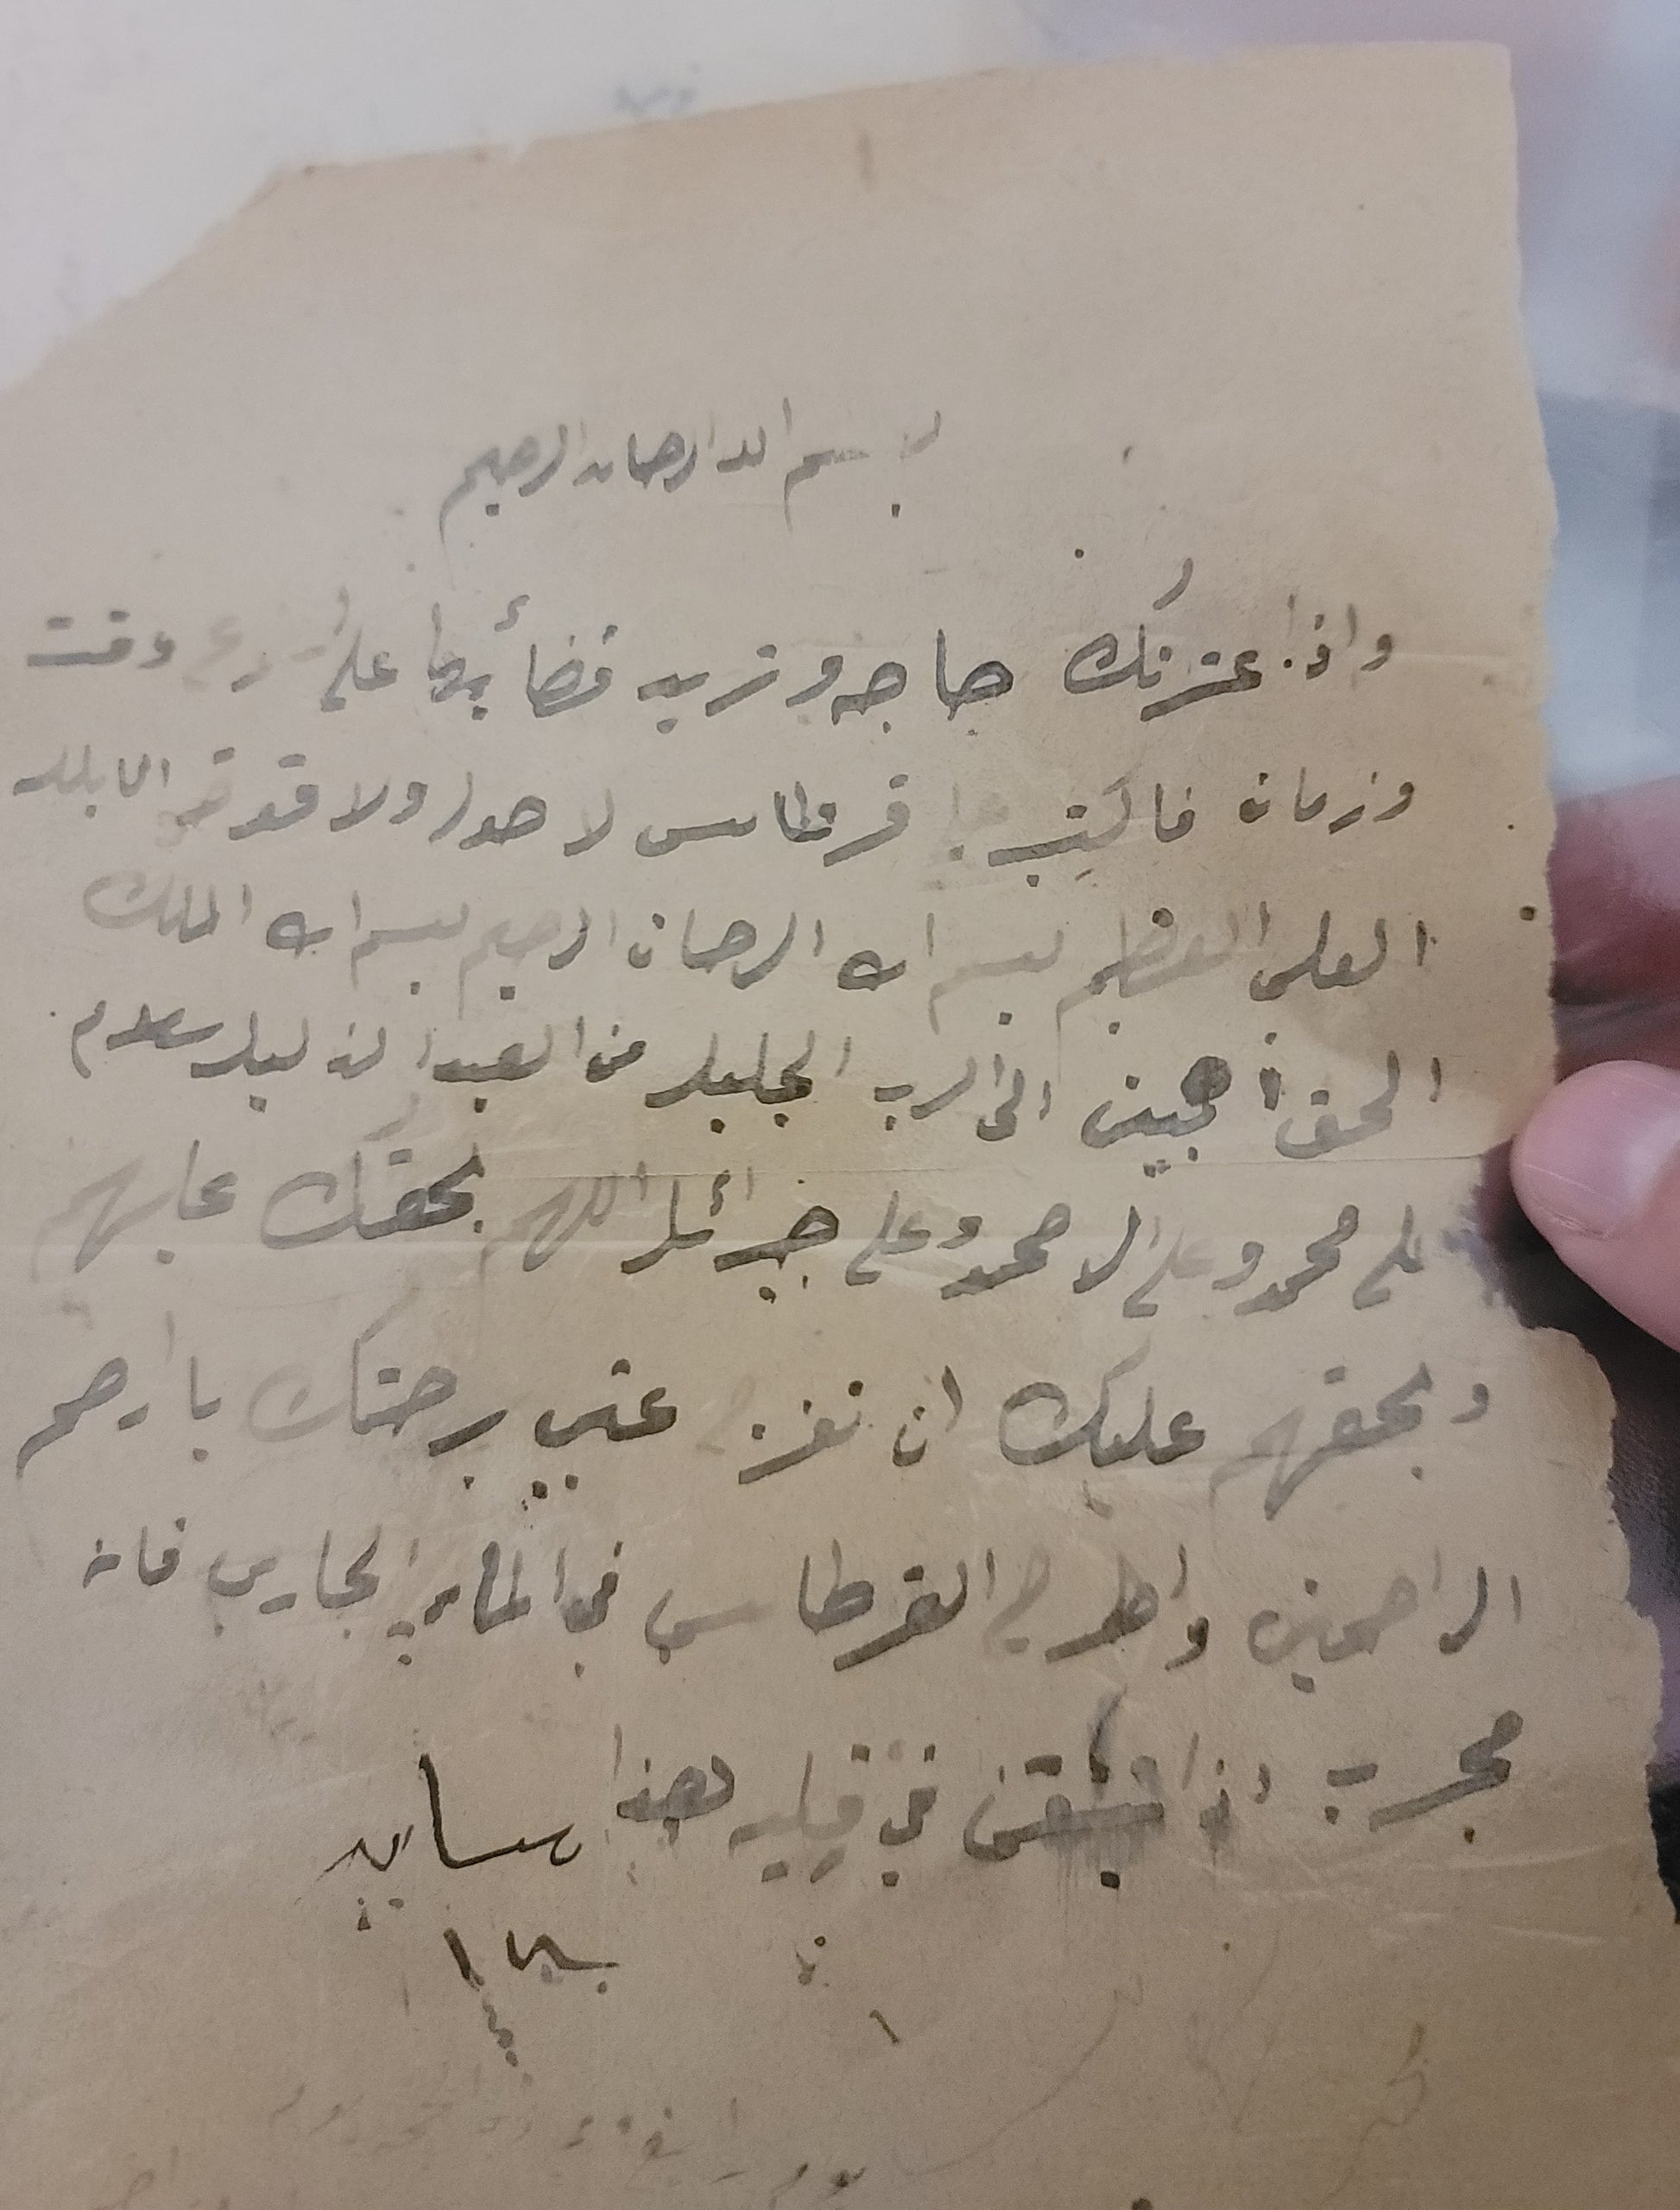 بسم الله الرحمان الرحيم
واذا عترتك حاجه وتريد قضائها على وقت
وزمان فاكتب قرطاس لا حول ولا قوة الا بلله
العلي العظيم بسم الله الرحمان الرحيم بسم الله الملك
الحق المبين الى الرب الجليل من العبد الذليل سلام
على محمد وعلى ال محمد وعلى جبرائيل اللهم بحقك عليهم
وبحقهم عليك ان تفرج عني برحمتك يا ارحم
الراحمين واطرح القرطاس في الماء الجاري فانه
مجرب اذا في قلبه هذا